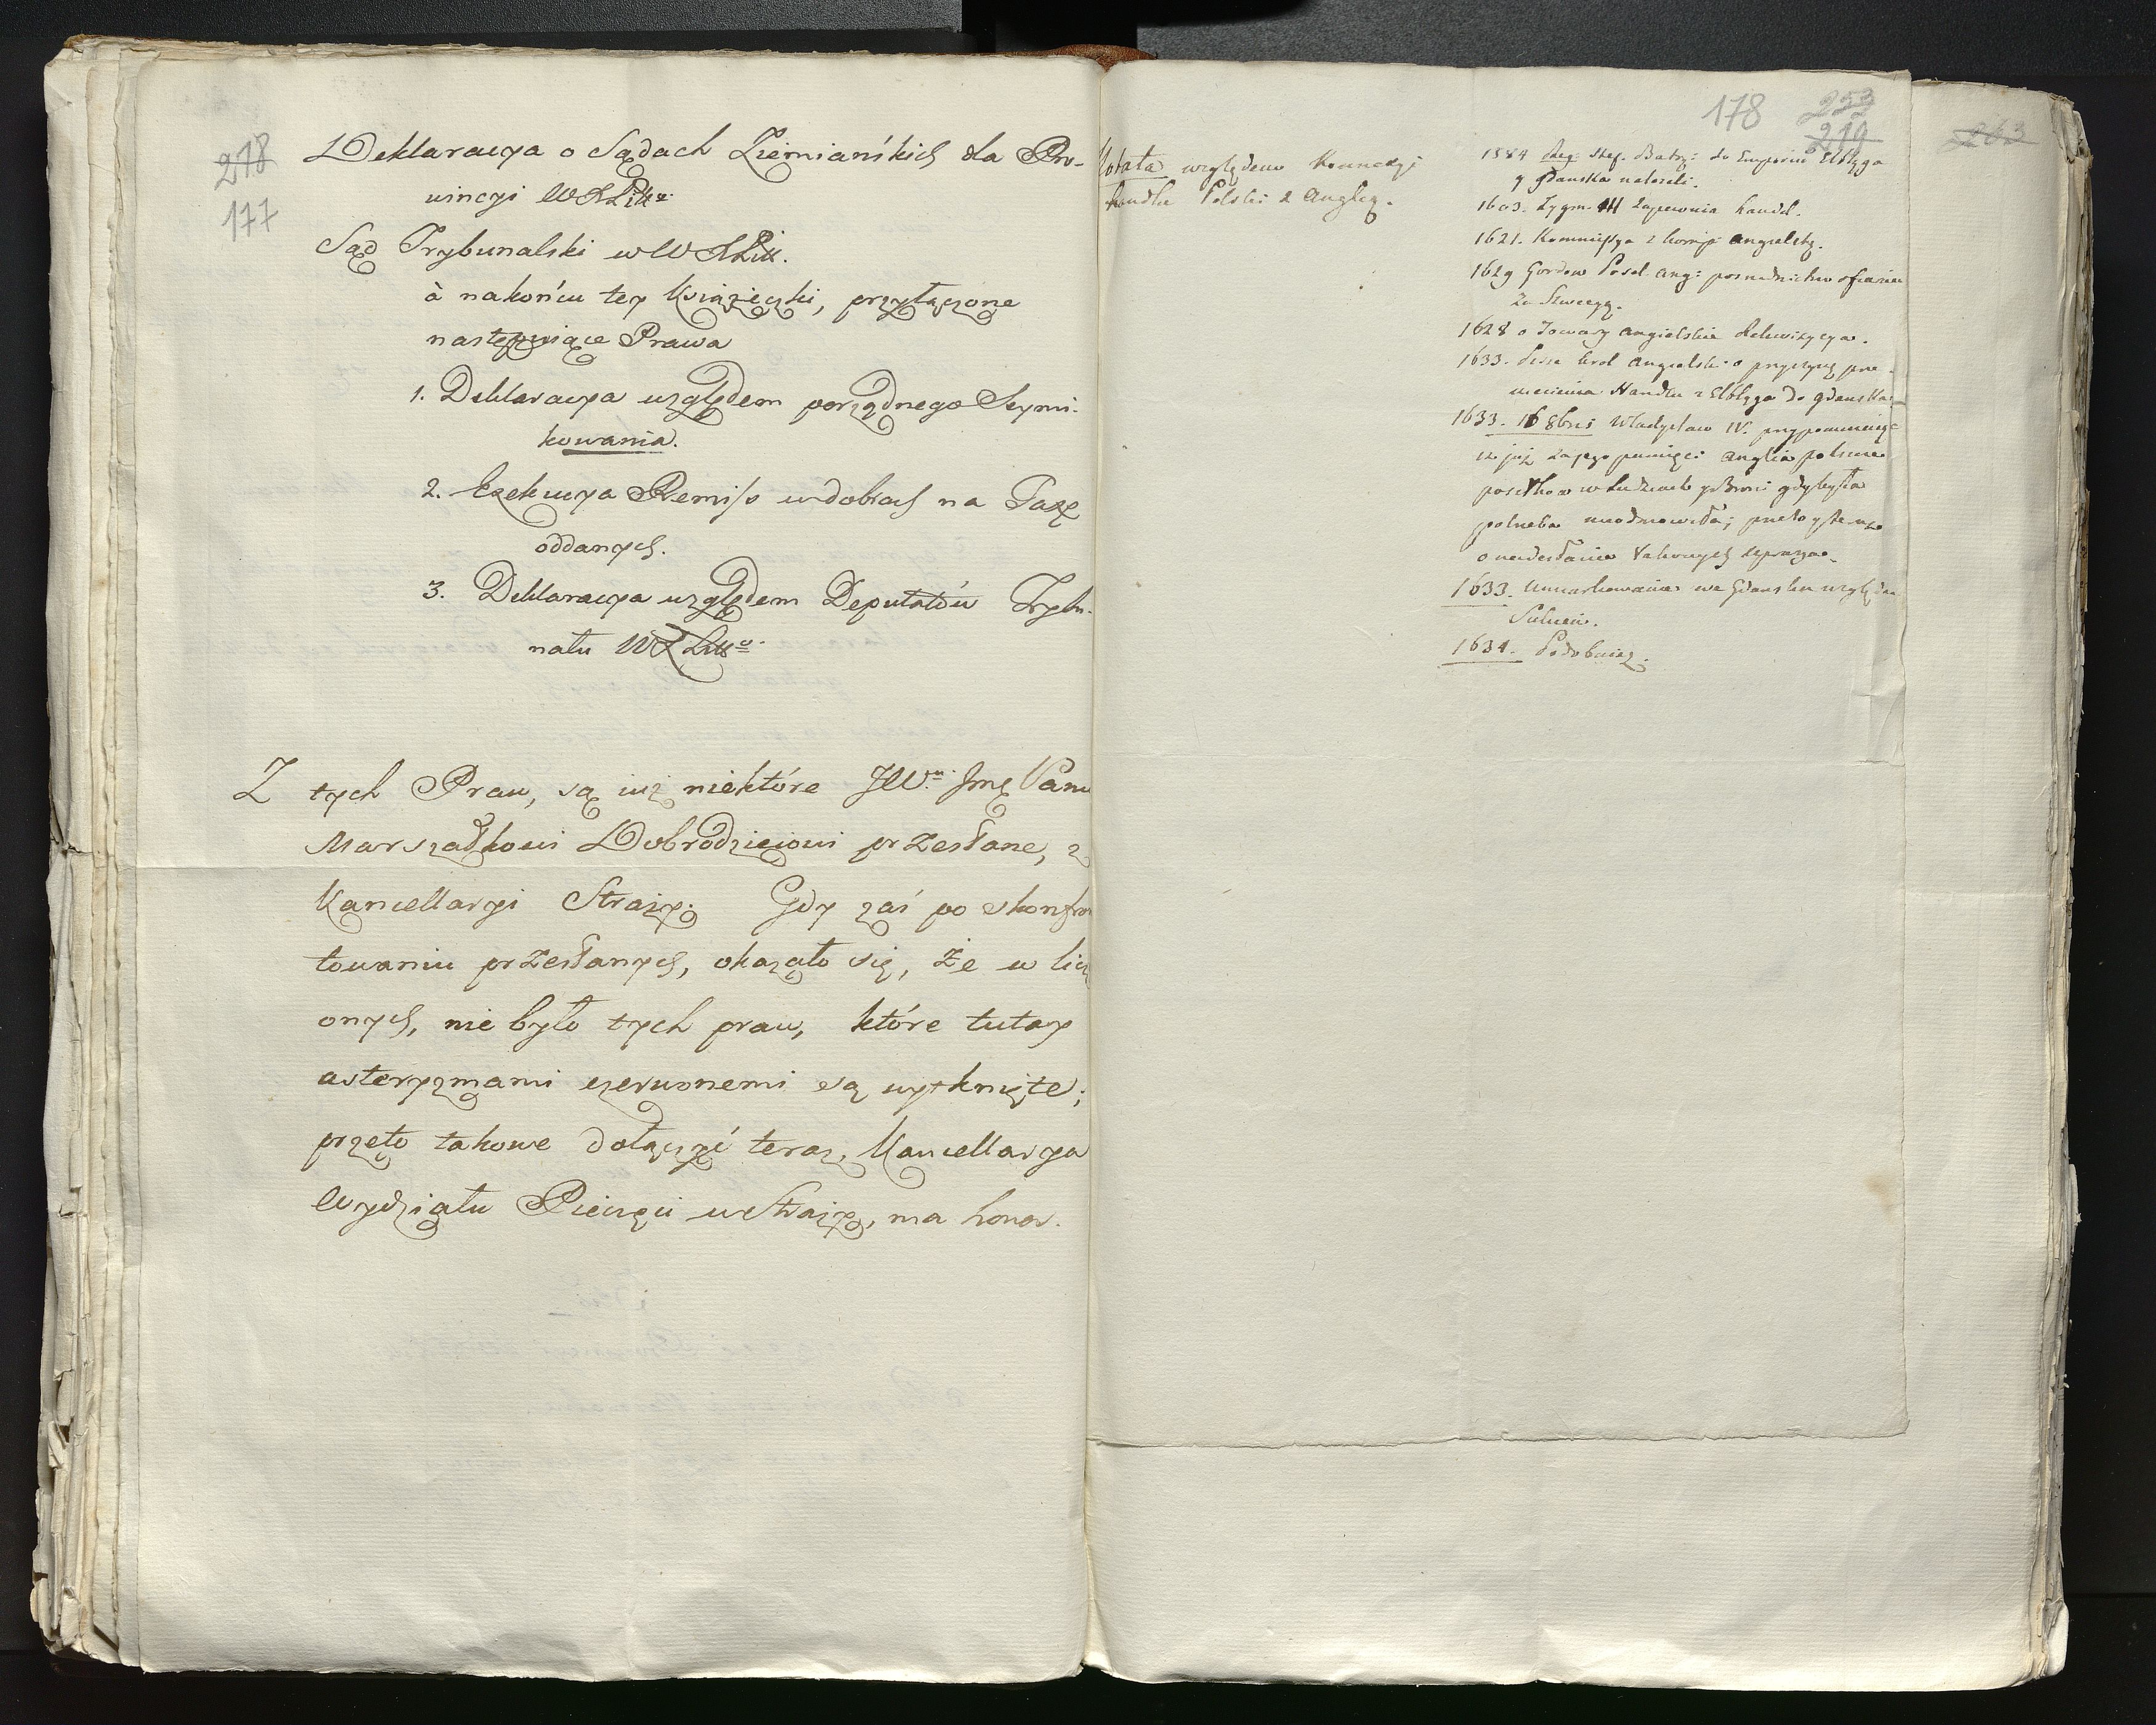 218
177
Deklaracya o Sądach Ziemiańskich dla Pro-
wincyi W X Litt:
Sąd Trybunalski w W X Litt.
à nakońcu tey Książeczki, przyłączone
następuiące Prawa
1. Deklaracya względem porządnego Seymi-
kowania.
2. Exekucya Remiss w dobrach na Taxę
oddanych.
3. Deklaracya względem Deputatów Trybu-
nału W X Litt:
Z tych Praw, są iuż niektóre JW. Jmę Panu
Marszałkowi Dobrodzieiowi przesłane, z
Kancellaryi Straży. Gdy zaś po skonfron
towaniu przesłanych, okazało się, że w licz
onych, nie było tych praw, które tutay
asteryzmami czerwonemi są wytknięte;
przeto takowe dołączyć teraz, Kancellarya
Wydziału Pieczęci w Straży, ma honor.
178
253
219
263
Notata względem Konnexyi
handlu Polski z Anglią.
1584 Reg: Stef. Batr: do Elbląga
y Gdańska należeli.
1603. Zygm. III zapewnia handl.
1621. Kommissya z komp: angielską.
1629 Gordon Posel. ang: pośrednictwo ofiaruie
ze Szwecyą.
1628 o Towary angielskie
1633. Pisze krol angielski o przyczynę prze-
niesienia Handlu z Elbląga do Gdańska.
1633. 16 8bris Władysław IV. przypominaiąc
iż już za jego pamięci Anglia polsce
posiłkow w ludziach y Broni gdy była
potrzeba nieodmowiła; przeto y teraz
o nadesłanie takowych uprasza.
1633. we Gdansku względem
1634. Podobnież.